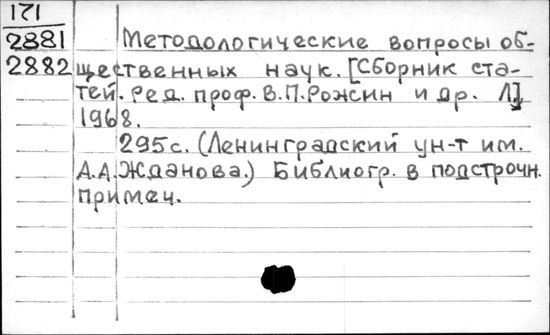 171
2881
2882
Методологические вопросы об-
щественных наук. [Сборник ста-
тей. Ред. проф. В.П. Рожин и др. Л],
1968.
295 с. (Ленинградский ун-т им.
А.А. Жданова.) Библиогр. в подстрочн.
примеч.